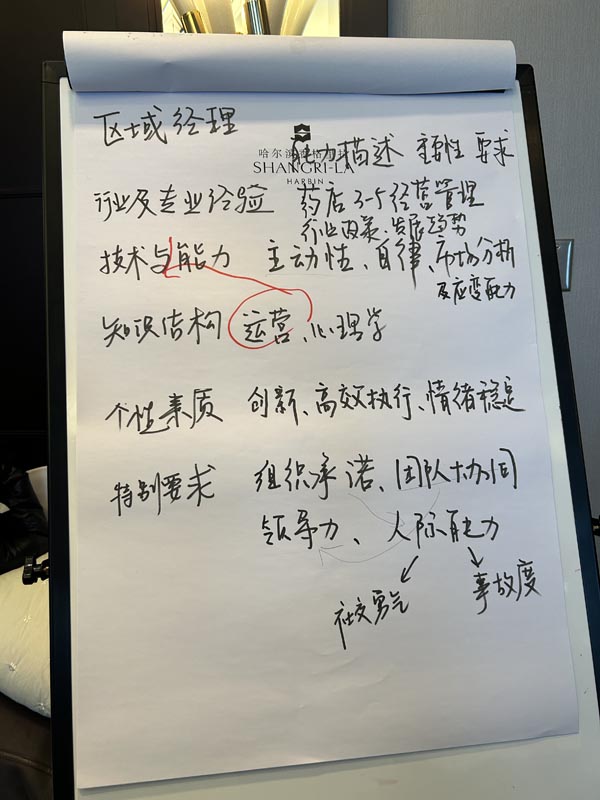 区域经理
能力描述 主要性 要求
哈尔滨香格里拉
SHANGRI-LA
HARBIN
行业及专业经验 药店3-5经营管理
行业政策、发展趋势
技术与能力 主动性、自律、市场分析
及应变能力
知识结构 运营、心理学
个性素质 创新、高效执行、情绪稳定
特别要求 组织承诺、团队协同
领导力、人际能力
社交勇气 事故度